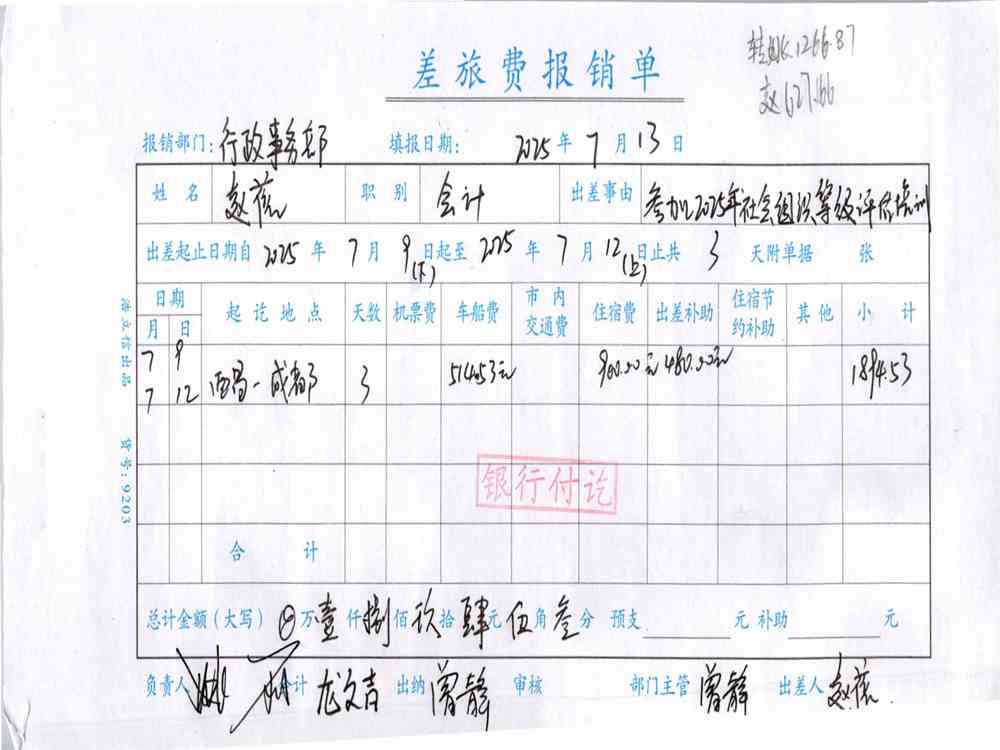 1266.87
赵 627.66
差旅费报销单
报销部门：行政事务部 填报日期： 2025 年 7 月 13 日
姓名 赵蓓 职别 会计 出差事由 参加2025年社会组织等级评估培训
出差起止日期自 2025 年 7 月 9 日(下) 起至 2025 年 7 月 12 日(上) 止共 3 天附单据 张
日期 起讫地点 天数 机票费 车船费 市内交通费 住宿费 出差补助 住宿节约补助 其他 小计
月 日
7 9
7 12 西昌-成都 3 514.53元 900.00元 480.00元 1894.53
银行付讫
合计
总计金额(大写) 万 壹 仟 捌 佰 玖 拾 肆 元 伍 角 叁 分 预支 元 补助 元
负责人 会计 龙文吉 出纳 曾静 审核 部门主管 曾静 出差人 赵蓓
浩立信出品 货号：9203